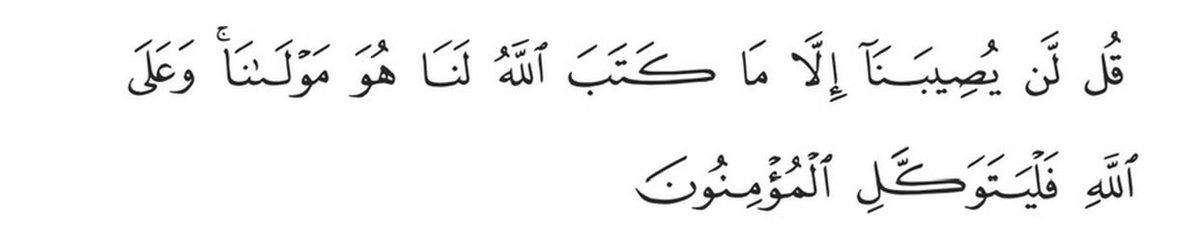 قُل لَّن يُصِيبَنَآ إِلَّا مَا كَتَبَ ٱللَّهُ لَنَا هُوَ مَوْلَىٰنَا ۚ وَعَلَى
ٱللَّهِ فَلْيَتَوَكَّلِ ٱلْمُؤْمِنُونَ